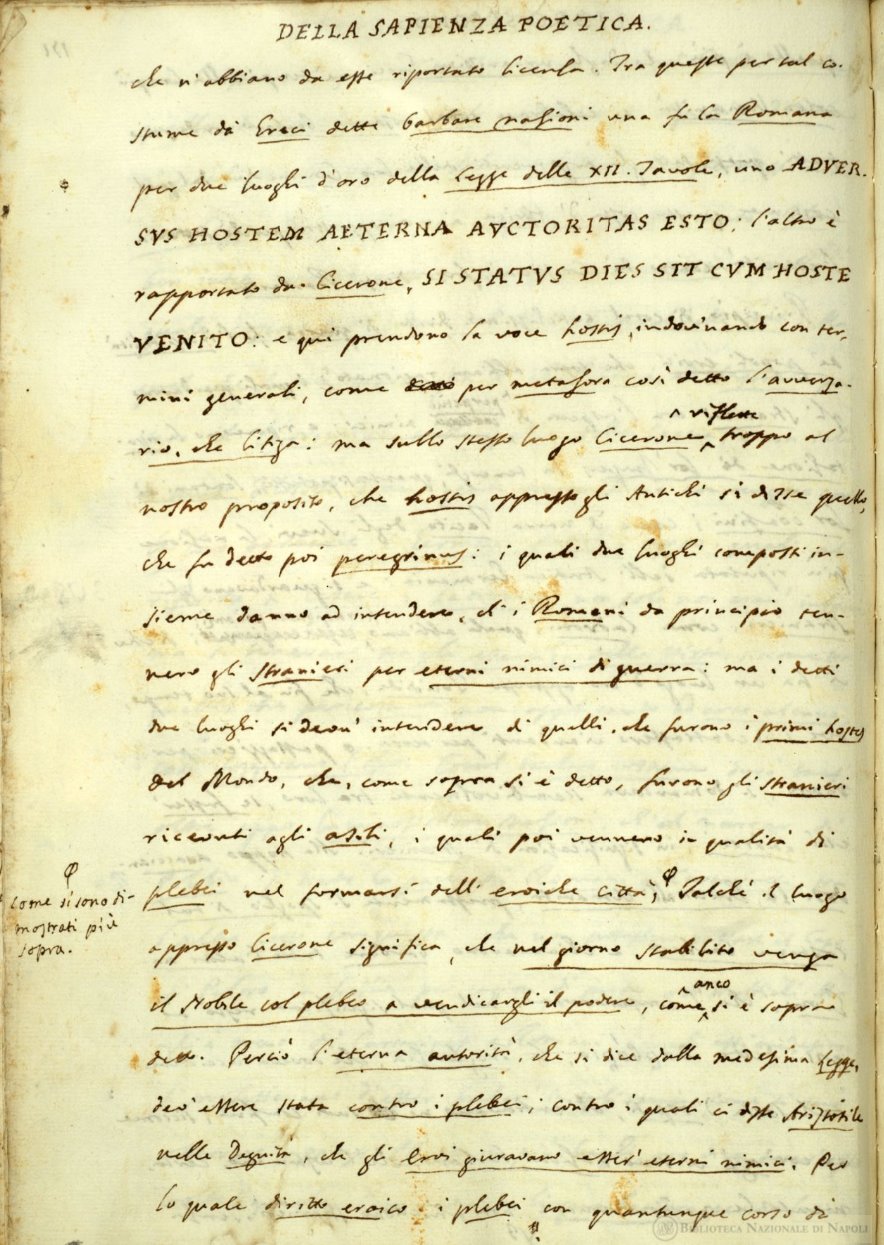 DELLA SAPIENZA POETICA.
che n'abbiano da esse riportato licenza. Tra queste per tal co-
stume da' Greci dette barbare nazioni una fu la Romana
per due luoghi d'oro della Legge delle XII. Tavole, uno ADVER-
SVS HOSTEM AETERNA AVCTORITAS ESTO; l'altro è
rapportato da Cicerone, SI STATVS DIES SIT CVM HOSTE
VENITO: e qui prendono la voce hostis, indovinando con ter-
mini generali, come per metafora così detto l'avversa-
rio, che litiga: ma sullo stesso luogo Cicerone riflette troppo al
nostro proposito, che hostis appresso gli Antichi si disse quello,
che fu detto poi peregrinus: i quali due luoghi composti in-
sieme danno ad intendere, ch'i Romani da principio ten-
nero gli stranieri per eterni nimici di guerra: ma i detti
due luoghi si deon' intendere di quelli, che furono i primi hostes
del Mondo, che, come sopra si è detto, furono gli stranieri
ricevuti agli asili, i quali poi vennero in qualità di
plebei nel formarsi dell' eroiche città; φ Talché il luogo
φ
come si sono di-
mostrati più
sopra.
appresso Cicerone significa, che nel giorno stabilito venga
il Nobile col plebeo a vendicargli il podere, come anco si è sopra
detto. Perciò l'eterna autorità, che si dice dalla medesima Legge,
deo' essere stata contro i plebei; contro i quali ci disse Aristotile
nelle Degnità, che gli Eroi giuravano esser' eterni nimici. Per
lo quale diritto eroico i plebei con quantunque corso di
BIBLIOTECA NAZIONALE DI NAPOLI